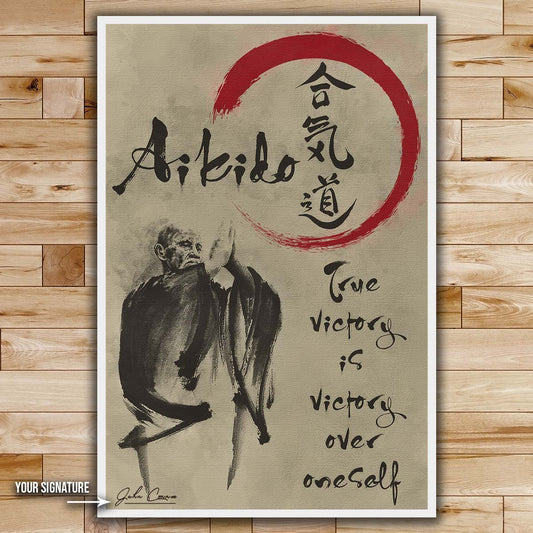 Aikido
合
気
道
True
victory
is
victory
over
oneself
YOUR SIGNATURE